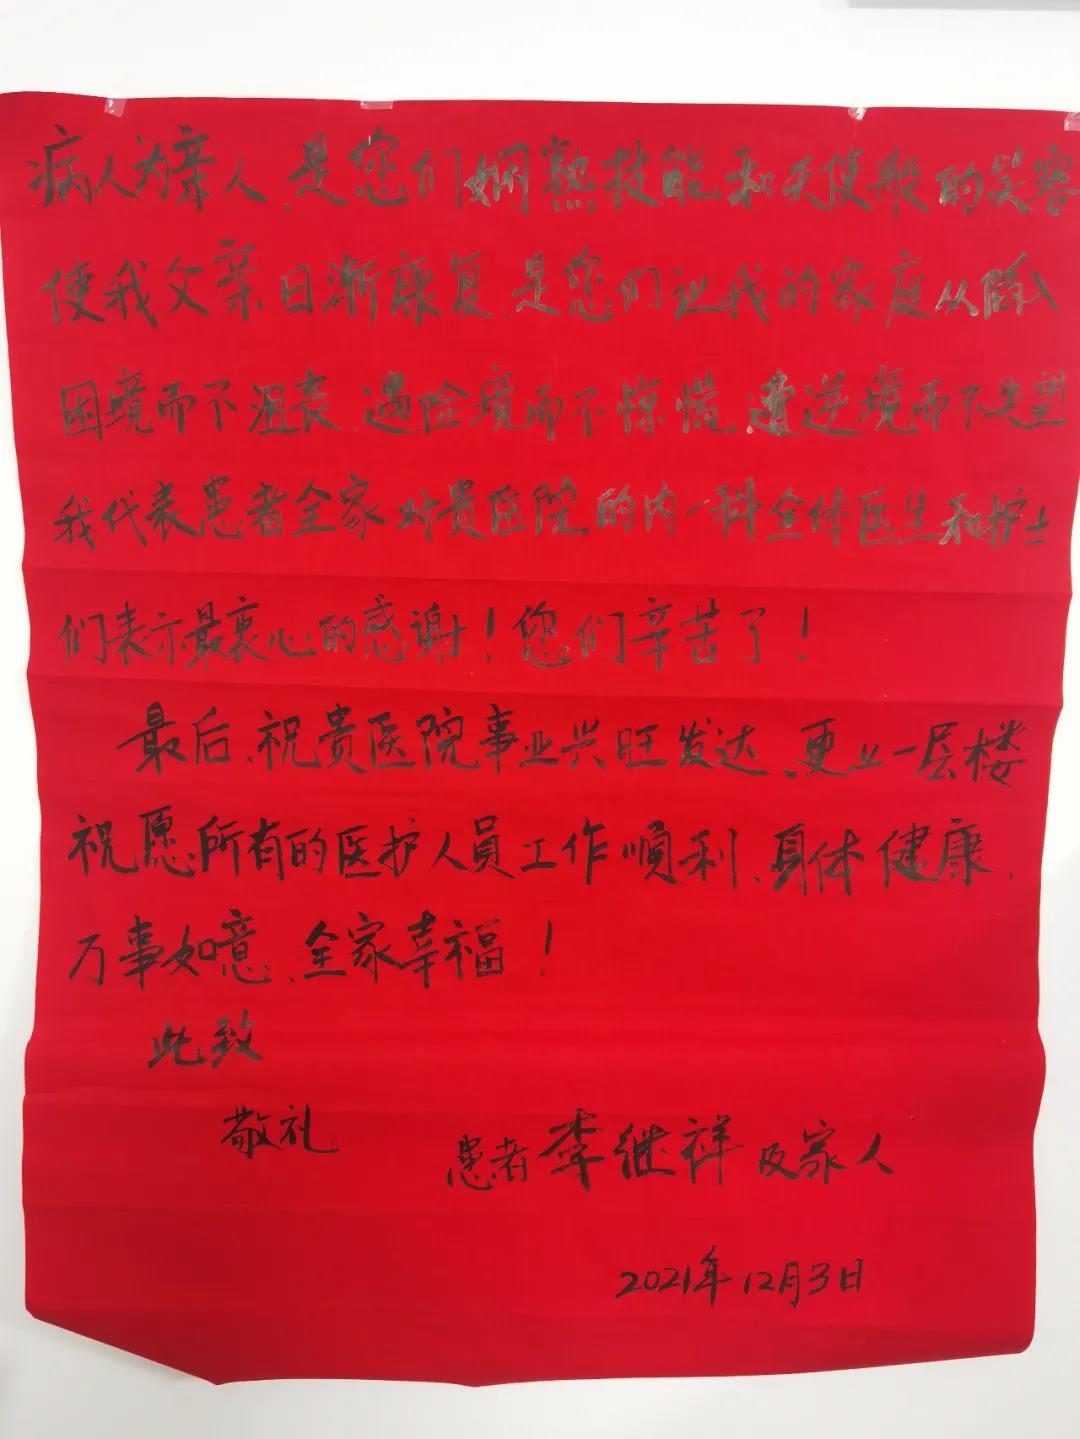 病人为亲人、是您们娴熟技能和天使般的笑容
使我父亲日渐康复、是您们让我的家庭从陷入
困境而不沮丧、遇险境而不惊慌、遭逆境而不失望
我代表患者全家对贵医院的内一科全体医生和护士
们表示最衷心的感谢！您们辛苦了！
最后、祝贵医院事业兴旺发达、更上一层楼
祝愿所有的医护人员工作顺利、身体健康、
万事如意、全家幸福！
此致
敬礼
患者李继祥及家人
2021年12月3日